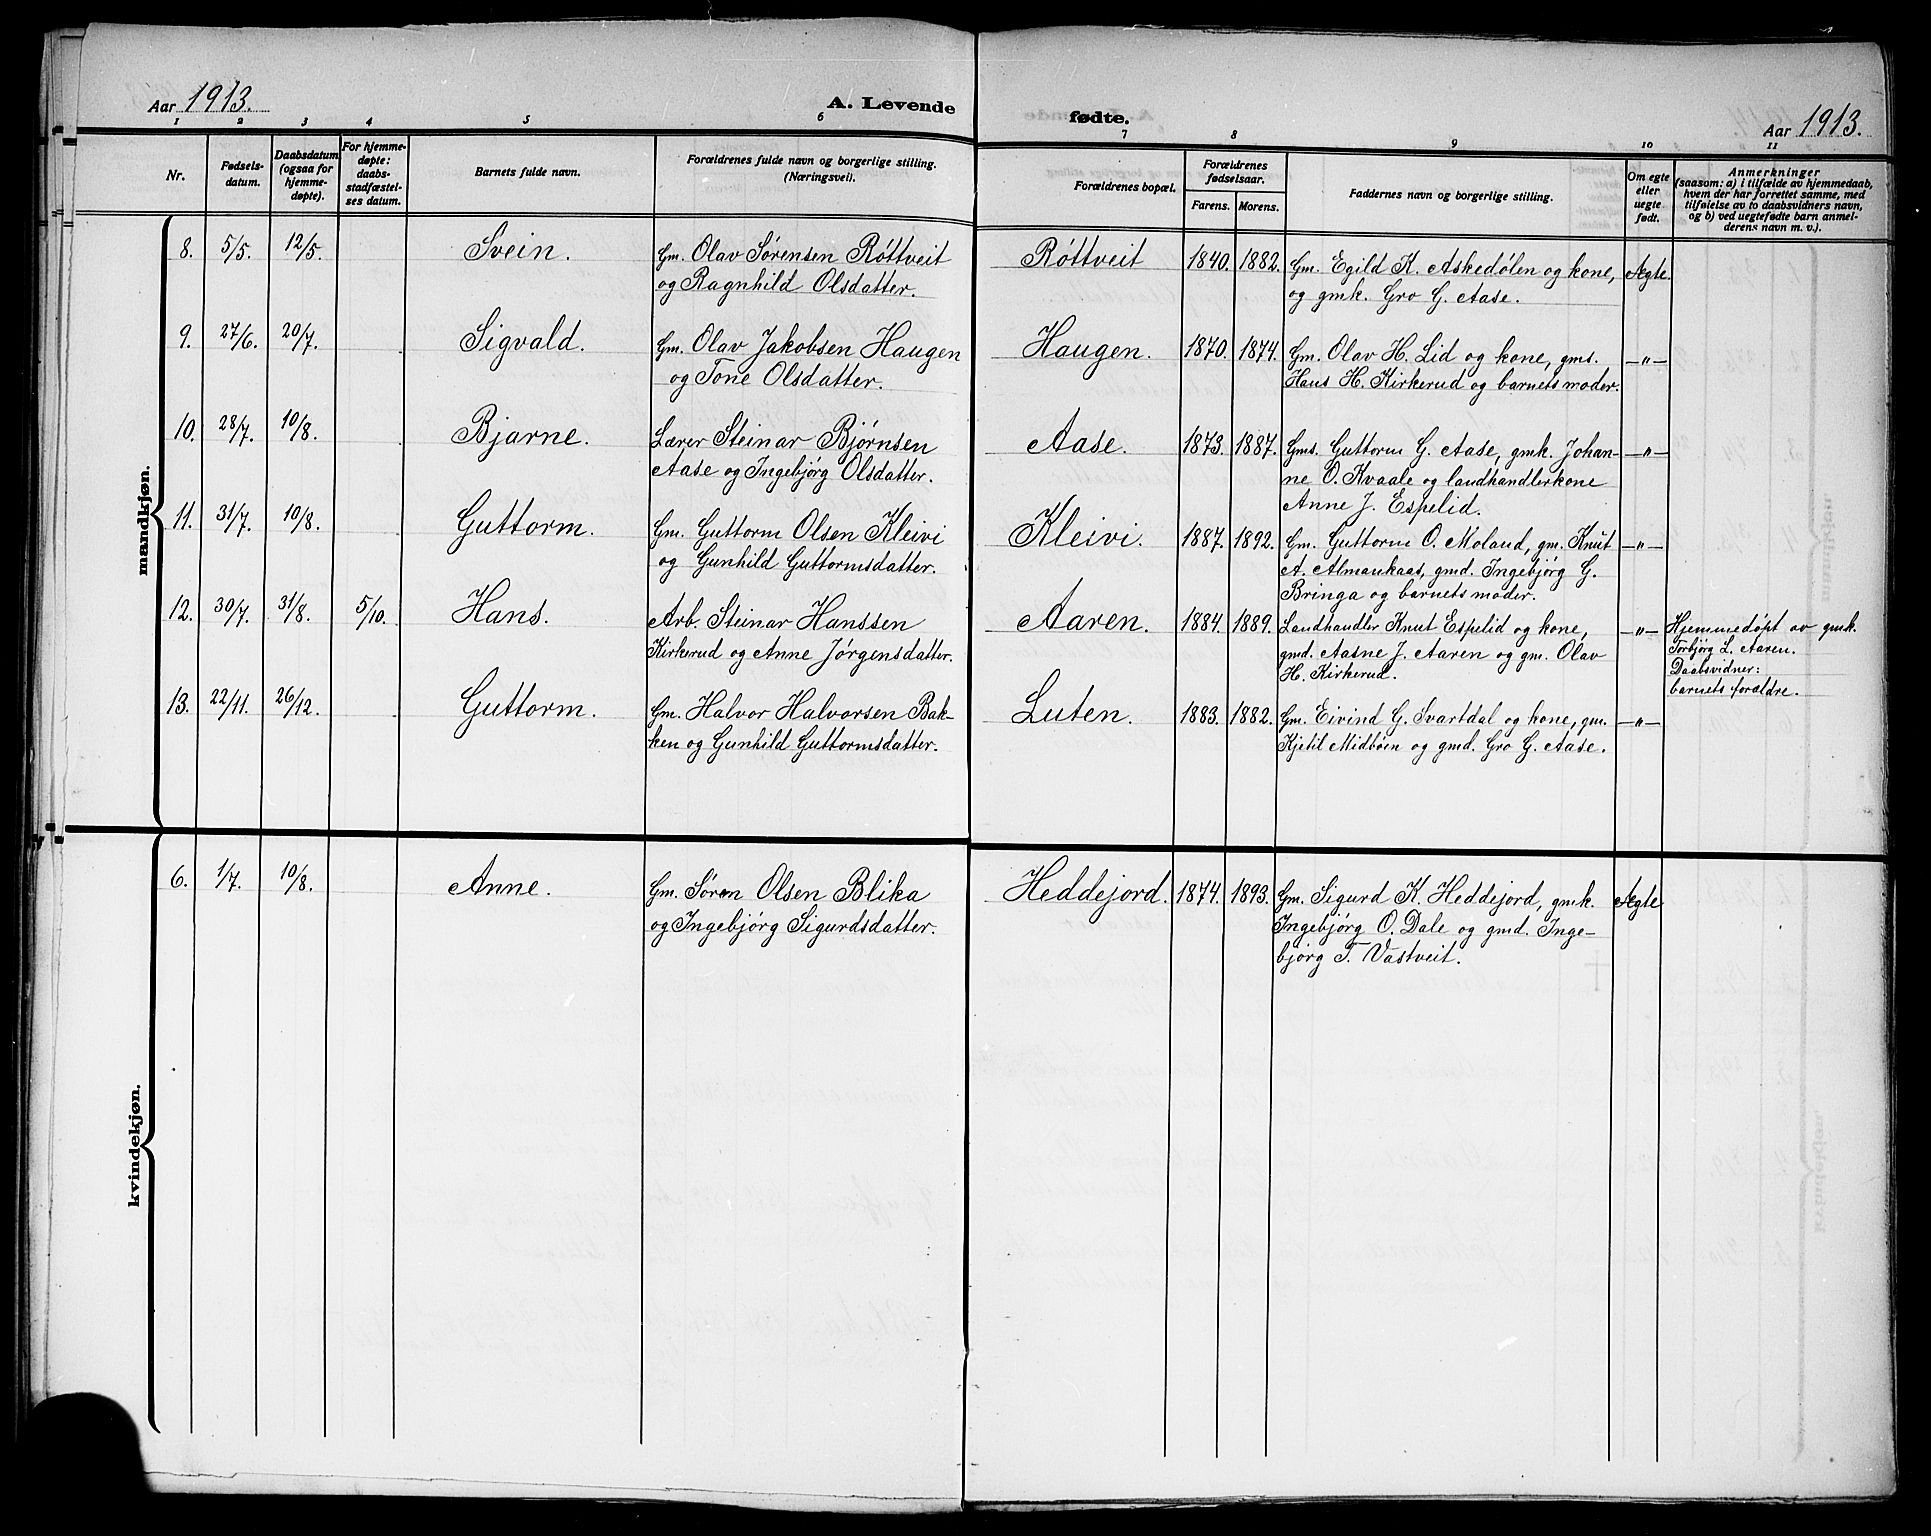 Aar 1913.
A. Levende fødte.
Aar 1913.
1 2 3 4 5 6 7 8 9 10 11
Nr.
Fødsels-
datum.
Daabsdatum
(ogsaa for
hjemme-
døpte).
For hjemme-
døpte:
daabs-
stadfæstel-
ses datum.
Barnets fulde navn.
Forældrenes fulde navn og borgerlige stilling.
(Næringsvei).
Forældrenes bopæl.
Forældrenes
fødselsaar.
Farens. Morens.
Faddernes navn og borgerlige stilling.
Om egte
eller
uegte
født.
Anmerkninger
(saasom: a) i tilfælde av hjemmedaab,
hvem der har forrettet samme, med
tilføielse av to daabsvidners navn,
og b) ved uegtefødte barn anmel-
derens navn m. v.).
mandkjøn.
8. 5/5. 12/5. Svein. Gm. Olav Sørensen Røttveit Røttveit 1840. 1882. Gm. Egild K. Askedølen og kone, Ægte.
og Ragnhild Olsdatter. og gmk. Gro G. Aase.
9. 27/6. 20/7. Sigvald. Gm. Olav Jakobsen Haugen Haugen. 1870. 1874. Gm. Olav H. Lid og kone, gms. —"—
og Tone Olsdatter. Hans H. Kirkerud og barnets moder.
10. 28/7. 10/8. Bjarne. Lærer Steinar Bjørnsen Aase. 1873. 1887. Gms. Guttorm G. Aase, gmk. Johan- —"—
Aase og Ingebjörg Olsdatter. ne O. Kvaale og landhandlerkone
Anne J. Espelid.
11. 31/7. 10/8. Guttorm. Gm. Guttorm Olsen Kleivi Kleivi. 1887. 1892. Gm. Guttorm O. Moland, gm. Knut —"—
og Gunhild Guttormsdatter. A. Almankaas, gmd. Ingebjørg G.
Bringa og barnets moder.
12. 30/7. 31/8. 5/10. Hans. Arb. Steinar Hanssen Aaren. 1884. 1889. Landhandler Knut Espelid og kone, —"— Hjemmedøpt av gmk.
Kirkerud og Anne Jørgensdatter. gmd. Aasne J. Aaren og gm. Olav Torbjörg L. Aaren.
H. Kirkerud. Daabsvidner:
barnets forældre.
13. 22/11. 26/12. Guttorm. Gm. Halvor Halvorsen Bak- Luten. 1883. 1882. Gm. Eivind G. Svartdal og kone, gm. —"—
ken og Gunhild Guttormsdatter. Kjetil Midbøen og gmd. Gro G. Aase.
kvindekjøn.
6. 1/7. 10/8. Anne. Gm. Søren Olsen Blika Heddejord. 1874. 1893. Gm. Sigurd K. Heddejord, gmk. Ægte
og Ingebjørg Sigurdsdatter. Ingebjørg O. Dale og gmd. Inge-
bjørg T. Vastveit.